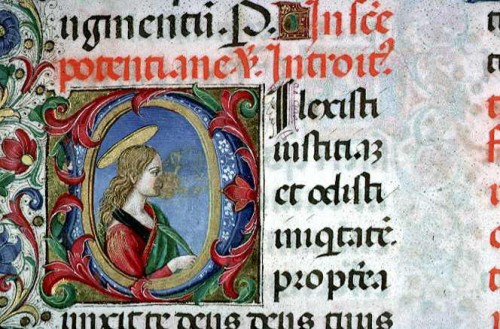 ugmentū. P. In scē
potentiane. v. Introit'.
DIlexisti
iusticiaz
et odisti
iniqtatē.
proptēa
unxit te deus deus tuus